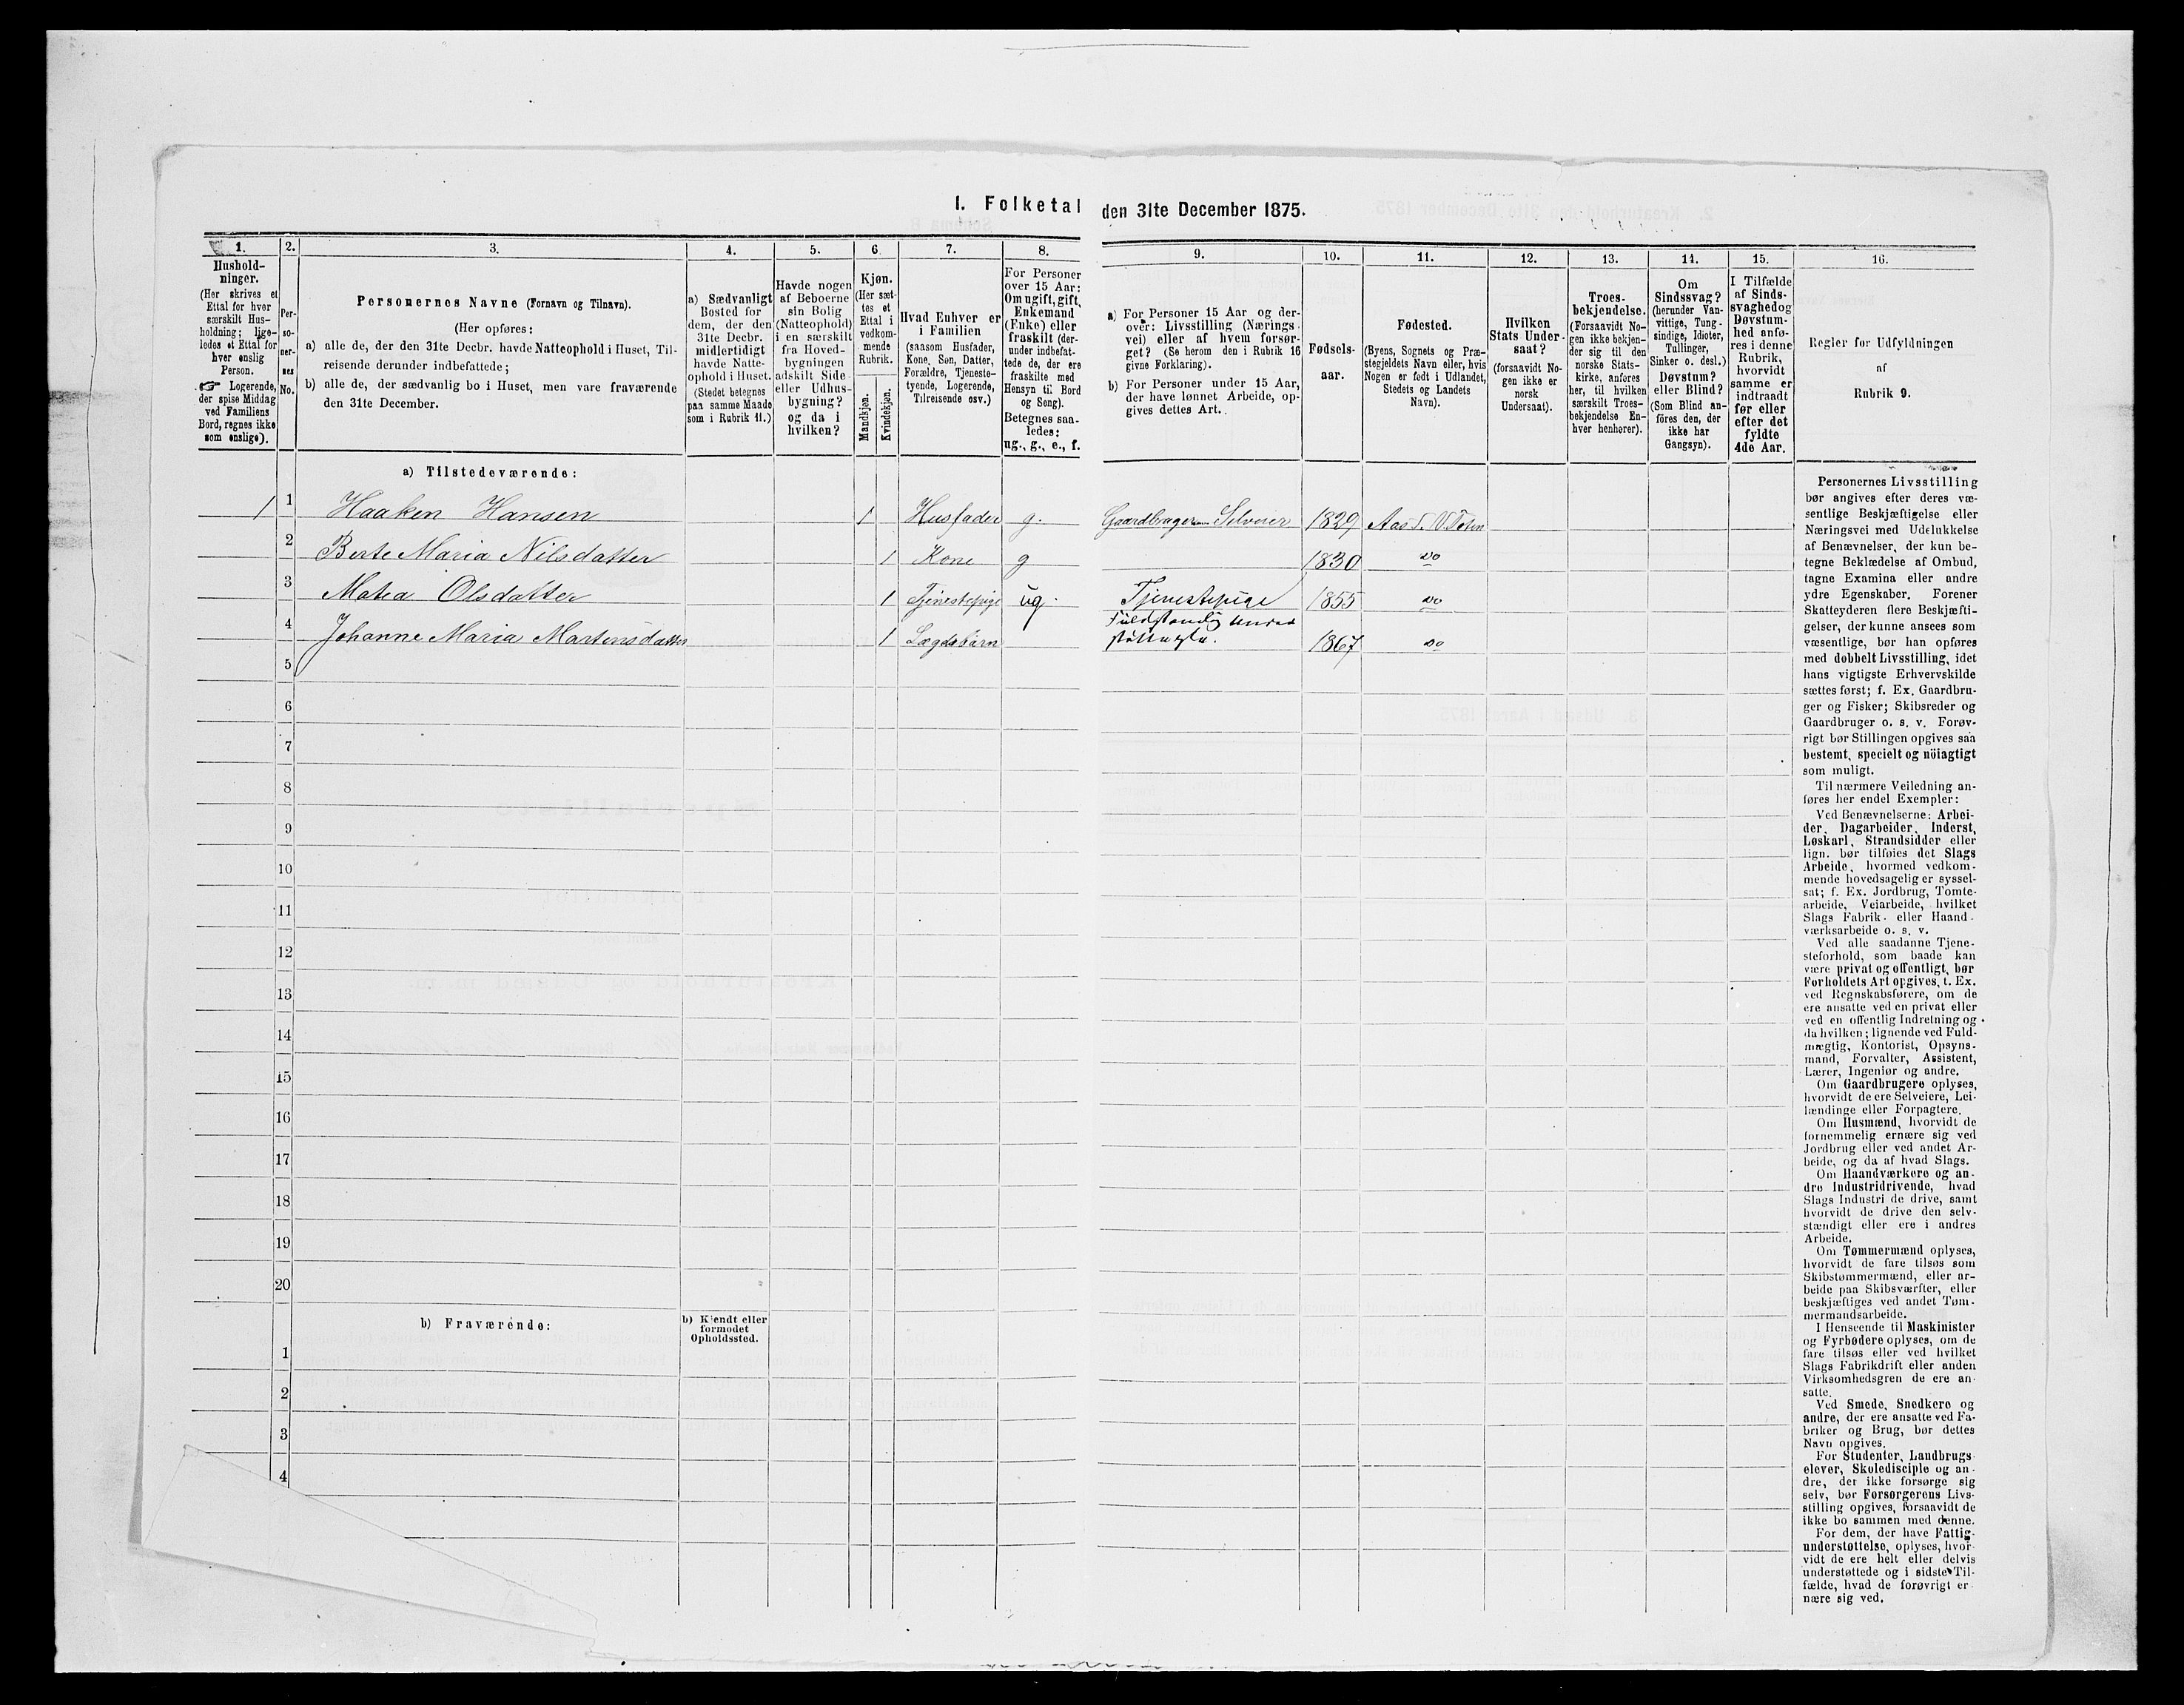 I. Folketal den 31te December 1875.
1. 2. 3. 4. 5. 6 7. 8. 9. 10. 11. 12. 13. 14. 15. 16.
Hushold-
ninger.
(Her skrives et
Ettal for hver
særskilt Hus-
holdning; lige-
ledes et Ettal for
hver enslig
Person.
☞ Logerende,
der spise Middag
ved Familiens
Bord, regnes ikke
som enslige).
Per-
so-
ner-
nes
No.
Personernes Navne (Fornavn og Tilnavn).
(Her opføres:
a) alle de, der den 31te Decbr. havde Natteophold i Huset, Til-
reisende derunder indbefattede;
b) alle de, der sædvanlig bo i Huset, men vare fraværende
den 31te December.
a) Sædvanligt
Bosted for
dem, der den
31te Decbr.
midlertidigt
havde Natte-
ophold i Huset.
(Stedet betegnes
paa samme Maade
som i Rubrik 11.)
Havde nogen
af Beboerne
sin Bolig
(Natteophold)
i en særskilt
fra Hoved-
bygningen
adskilt Side-
eller Udhus-
bygning?
og da i
hvilken?
Kjøn.
(Her sæt-
tes et
Ettal i
vedkom-
mende
Rubrik.
Mandkjøn.
Kvindekjøn.
Hvad Enhver er
i Familien
(saasom Husfader,
Kone, Søn, Datter,
Forældre, Tjeneste-
tyende, Logerende,
Tilreisende osv.)
For Personer
over 15 Aar:
Om ugift, gift,
Enkemand
(Enke) eller
fraskilt (der-
under indbefat-
tede de, der ere
fraskilte med
Hensyn til Bord
og Seng).
Betegnes saa-
ledes:
ug., g., e., f.
a) For Personer 15 Aar og der-
over: Livsstilling (Nærings-
vei) eller af hvem forsør-
get? (Se herom den i Rubrik 16
givne Forklaring).
b) For Personer under 15 Aar,
der have lønnet Arbeide, op-
gives dettes Art.
Fødsels-
aar.
Fødested.
(Byens, Sognets og Præ-
stegjeldets Navn eller, hvis
Nogen er født i Udlandet,
Stedets og Landets
Navn).
Hvilken
Stats Under-
saat?
(forsaavidt No-
gen ikke er
norsk
Undersaat).
Troes-
bekjendelse.
(Forsaavidt No-
gen ikke bekjen-
der sig til den
norske Stats-
kirke, anføres
her, til hvilken
særskilt Troes-
bekjendelse En-
hver henhører).
Om
Sindssvag?
(herunder Van-
vittige, Tung-
sindige, Idioter,
Tullinger,
Sinker o. desl.)
Døvstum?
eller Blind?
(Som Blind an-
føres den, der
ikke har
Gangsyn).
I Tilfælde
af Sinds-
svaghed og
Døvstum-
hed anfø-
res i denne
Rubrik,
hvorvidt
samme er
indtraadt
før eller
efter det
fyldte
4de Aar.
Regler for Udfyldningen
af
Rubrik 9.
a) Tilstedeværende:
1 1 Haaken Hansen 1 Husfader g. Gaardbruger Selveier 1829 Aas S. V. Toten
2 Berte Maria Nilsdatter 1 Kone g 1830 do
3 Matea Olsdatter 1 Tjenestepige ug. Tjenestepige 1855 do
4 Johanne Maria Martinsdatter 1 Lægdsbarn Fuldstændig 1867 do
5
6
7
8
9
10
11
12
13
14
15
16
17
18
19
20
b) Fraværende: b) Kjendt eller
formodet
Opholdssted.
1
2
3
4
Personernes Livsstilling
bør angives efter deres væ-
sentlige Beskjæftigelse eller
Næringsvei med Udelukkelse
af Benævnelser, der kun be-
tegne Beklædelse af Ombud,
tagne Examina eller andre
ydre Egenskaber. Forener
Skatteyderen flere Beskjæfti-
gelser, der kunne ansees som
væsentlige, bør han opføres
med dobbelt Livsstilling, idet
hans vigtigste Erhvervskilde
sættes først; f. Ex. Gaardbru-
ger og Fisker; Skibsreder og
Gaardbruger o. s. v. Forøv-
rigt bør Stillingen opgives saa
bestemt, specielt og nöiagtigt
som muligt.
Til nærmere Veiledning an-
føres her endel Exempler:
Ved Benævnelserne: Arbei-
der, Dagarbeider, Inderst,
Løskarl, Strandsidder eller
lign. bør tilføies det Slags
Arbeide, hvormed vedkom-
mende hovedsagelig er syssel-
sat; f. Ex. Jordbrug, Tomte-
arbeide, Veiarbeide, hvilket
Slags Fabrik- eller Haand-
værksarbeide o. s. v.
Ved alle saadanne Tjene-
steforhold, som baade kan
være privat og offentligt, bør
Forholdets Art opgives, t. Ex.
ved Regnskabsførere, om de
ere ansatte ved en privat eller
ved en offentlig Indretning og
da hvilken; lignende ved Fuld-
mægtig, Kontorist, Opsyns-
mand, Forvalter, Assistent,
Lærer, Ingeniør og andre.
Om Gaardbrugere oplyses,
hvorvidt de ere Selveiere, Lei-
lændinge eller Forpagtere.
Om Husmænd, hvorvidt de
fornemmelig ernære sig ved
Jordbrug eller ved andet Ar-
beide, og da af hvad Slags.
Om Haandværkere og an-
dre Industridrivende, hvad
Slags Industri de drive, samt
hvorvidt de drive den selv-
stændigt eller ere i andres
Arbeide.
Om Tømmermænd oplyses,
hvorvidt de fare tilsøs som
Skibstømmermænd, eller ar-
beide paa Skibsværfter, eller
beskjæftiges ved andet Tøm-
mermandsarbeide.
I Henseende til Maskinister
og Fyrbødere oplyses, om de
fare tilsøs eller ved hvilket
Slags Fabrikdrift eller anden
Virksomhedsgren de ere an-
satte.
Ved Smede, Snedkere og
andre, der ere ansatte ved Fa-
briker og Brug, bør dettes
Navn opgives.
For Studenter, Landbrugs-
elever, Skoledisciple og an-
dre, der ikke forsørge sig
selv, bør Forsørgerens Livs-
stilling opgives, forsaavidt de
ikke bo sammen med denne.
For dem, der have Fattig-
understøttelse, oplyses, hvor-
vidt de ere helt eller delvis
understøttede og i sidste Til-
fælde, hvad de forøvrigt er-
nære sig ved.